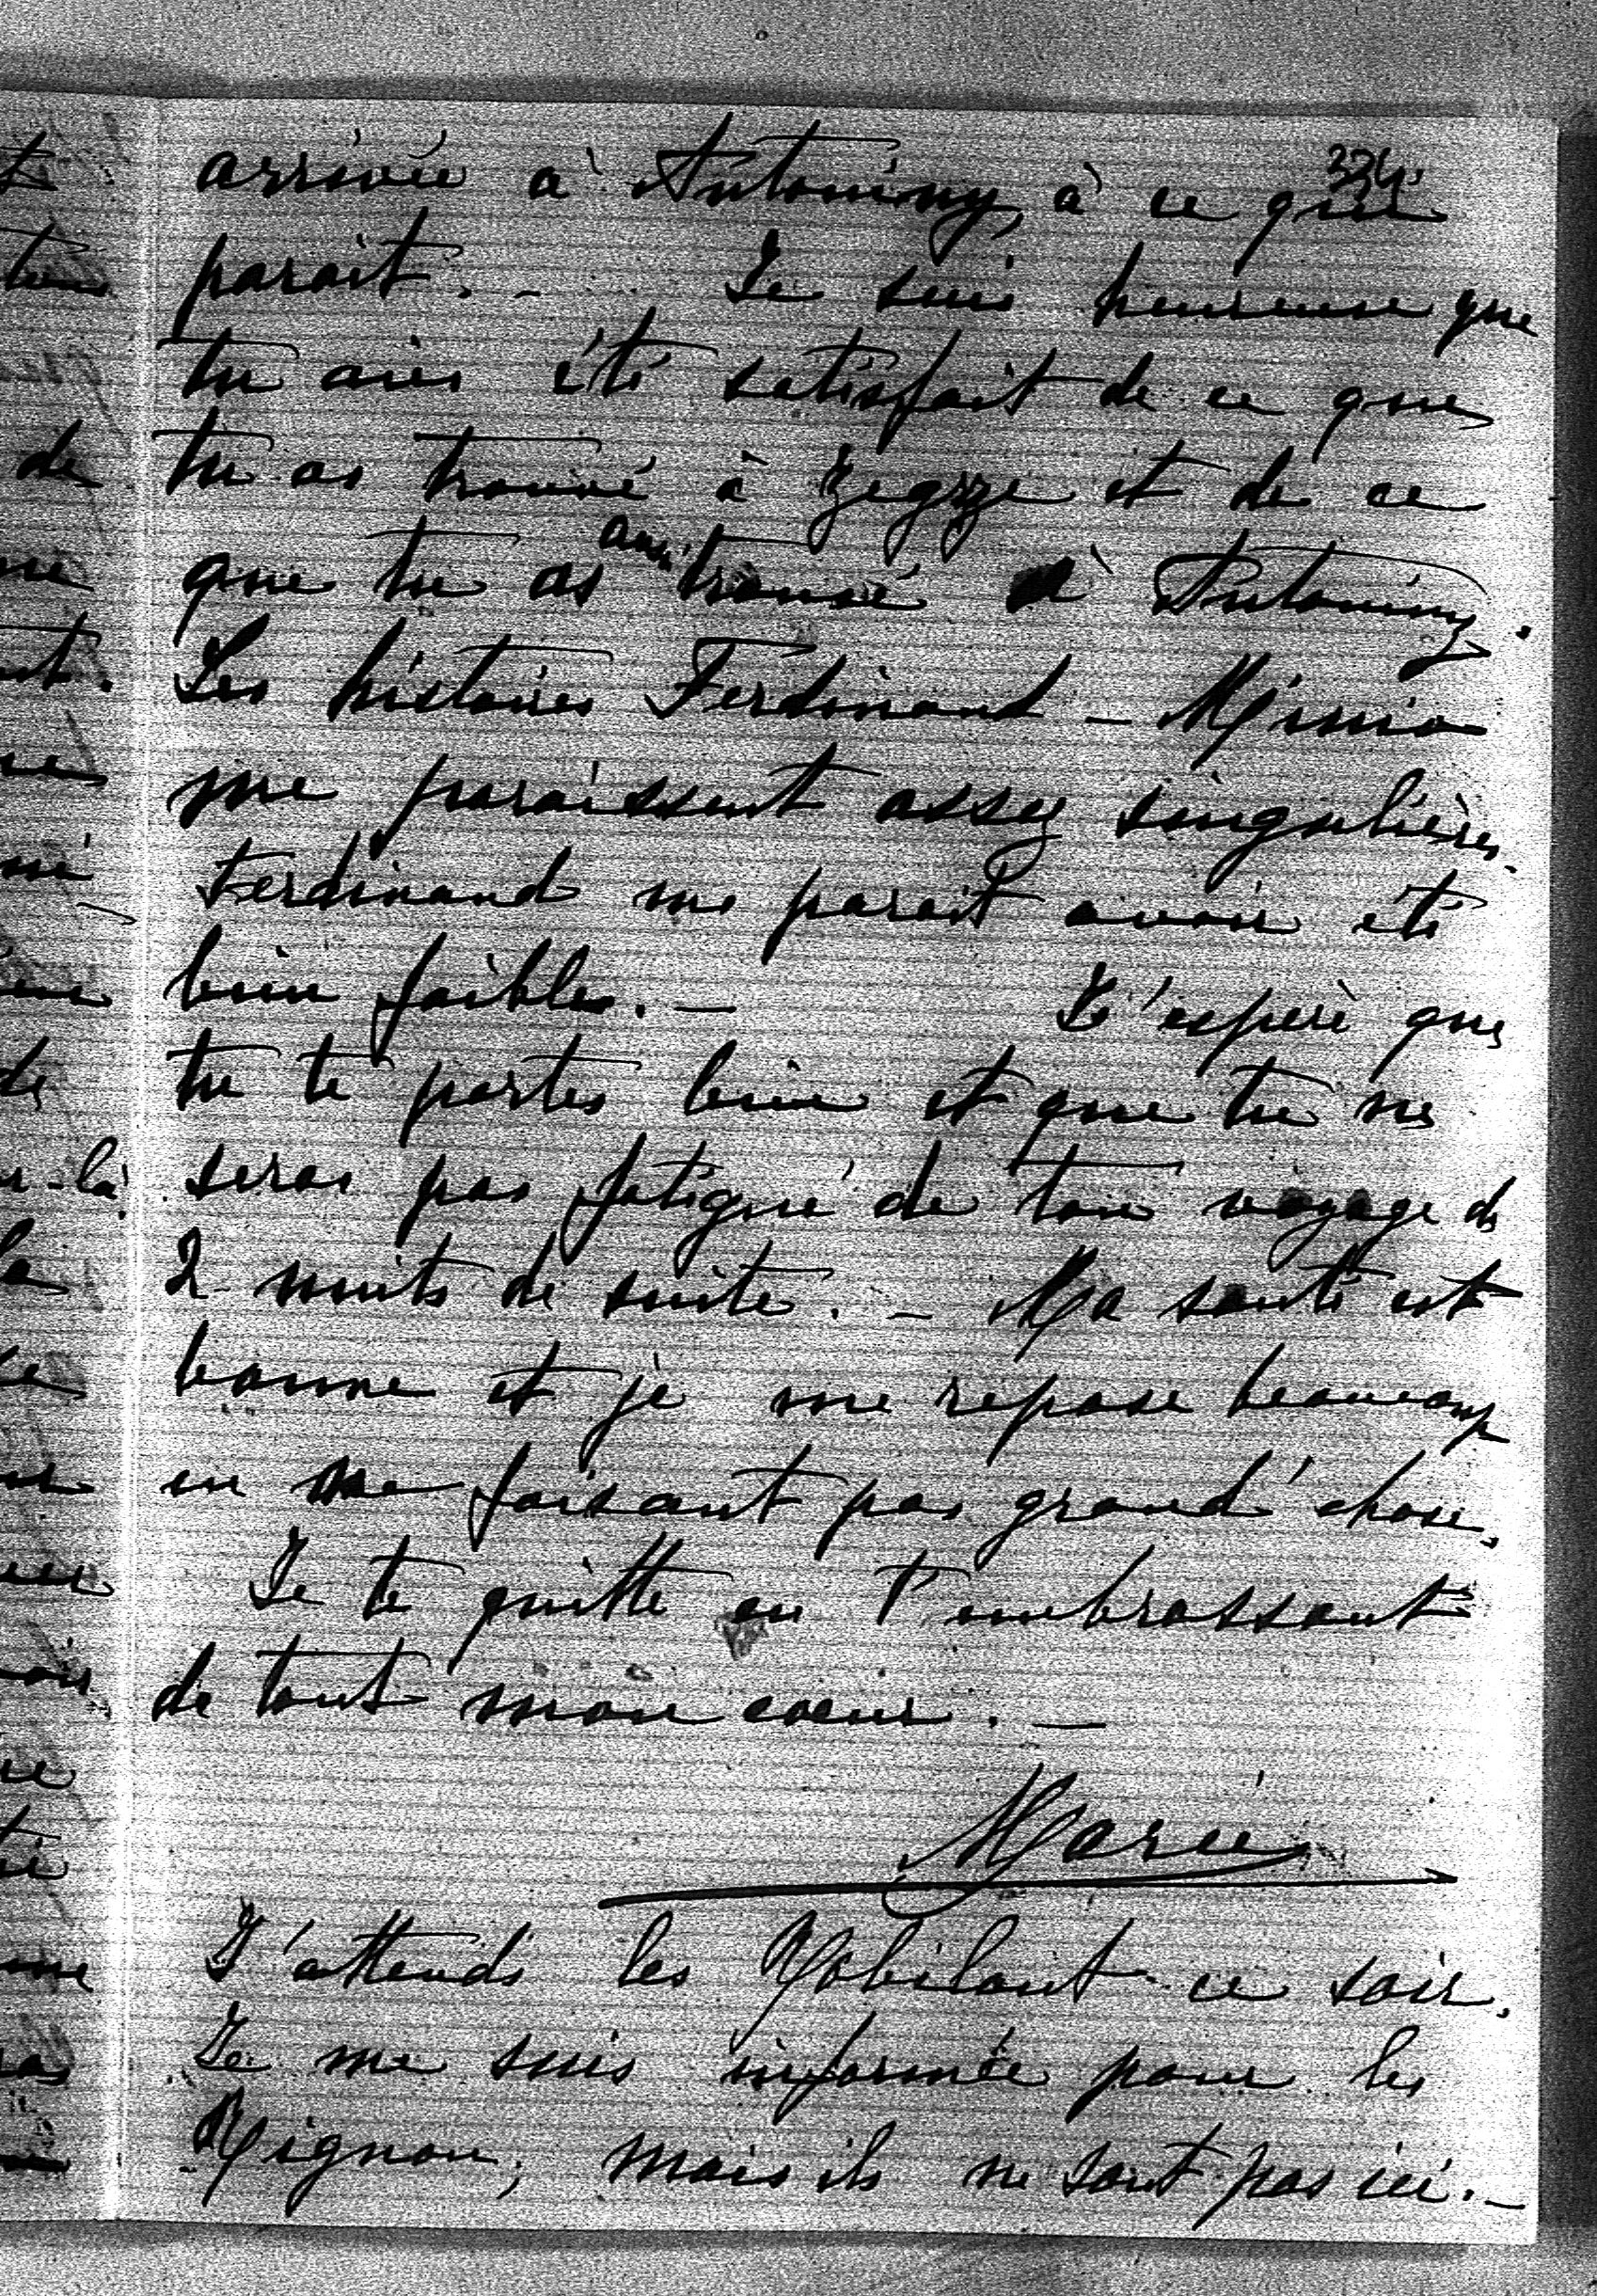 334
arrivée à Antoniny, à ce qui
parait. - Je suis heureuse que
tu aies été satisfait de ce que
tu as trouvé à Zegrze et de ce
que tu as aussi trouvé à Antoniny.
Les histoires Ferdinand - Mimia
me paraissent assez singulières.
Ferdinand me parait avoir été
bien faible. - J'espère que
tu te portes bien et que tu ne
seras pas fatigué de ton voyage de
2 nuits de suite. - Ma santé est
bonne et je me repose beaucoup
en ne faisant pas grand'chose.
Je te quitte en t'embrassant
de tout mon coeur. -
Marie
J'attends les Robilant ce soir.
Je me suis informée pour les
Mignon, mais ils ne sont pas ici. -